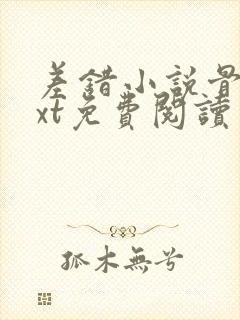 差錯小說骨
xt免費閱讀
孤木無兮